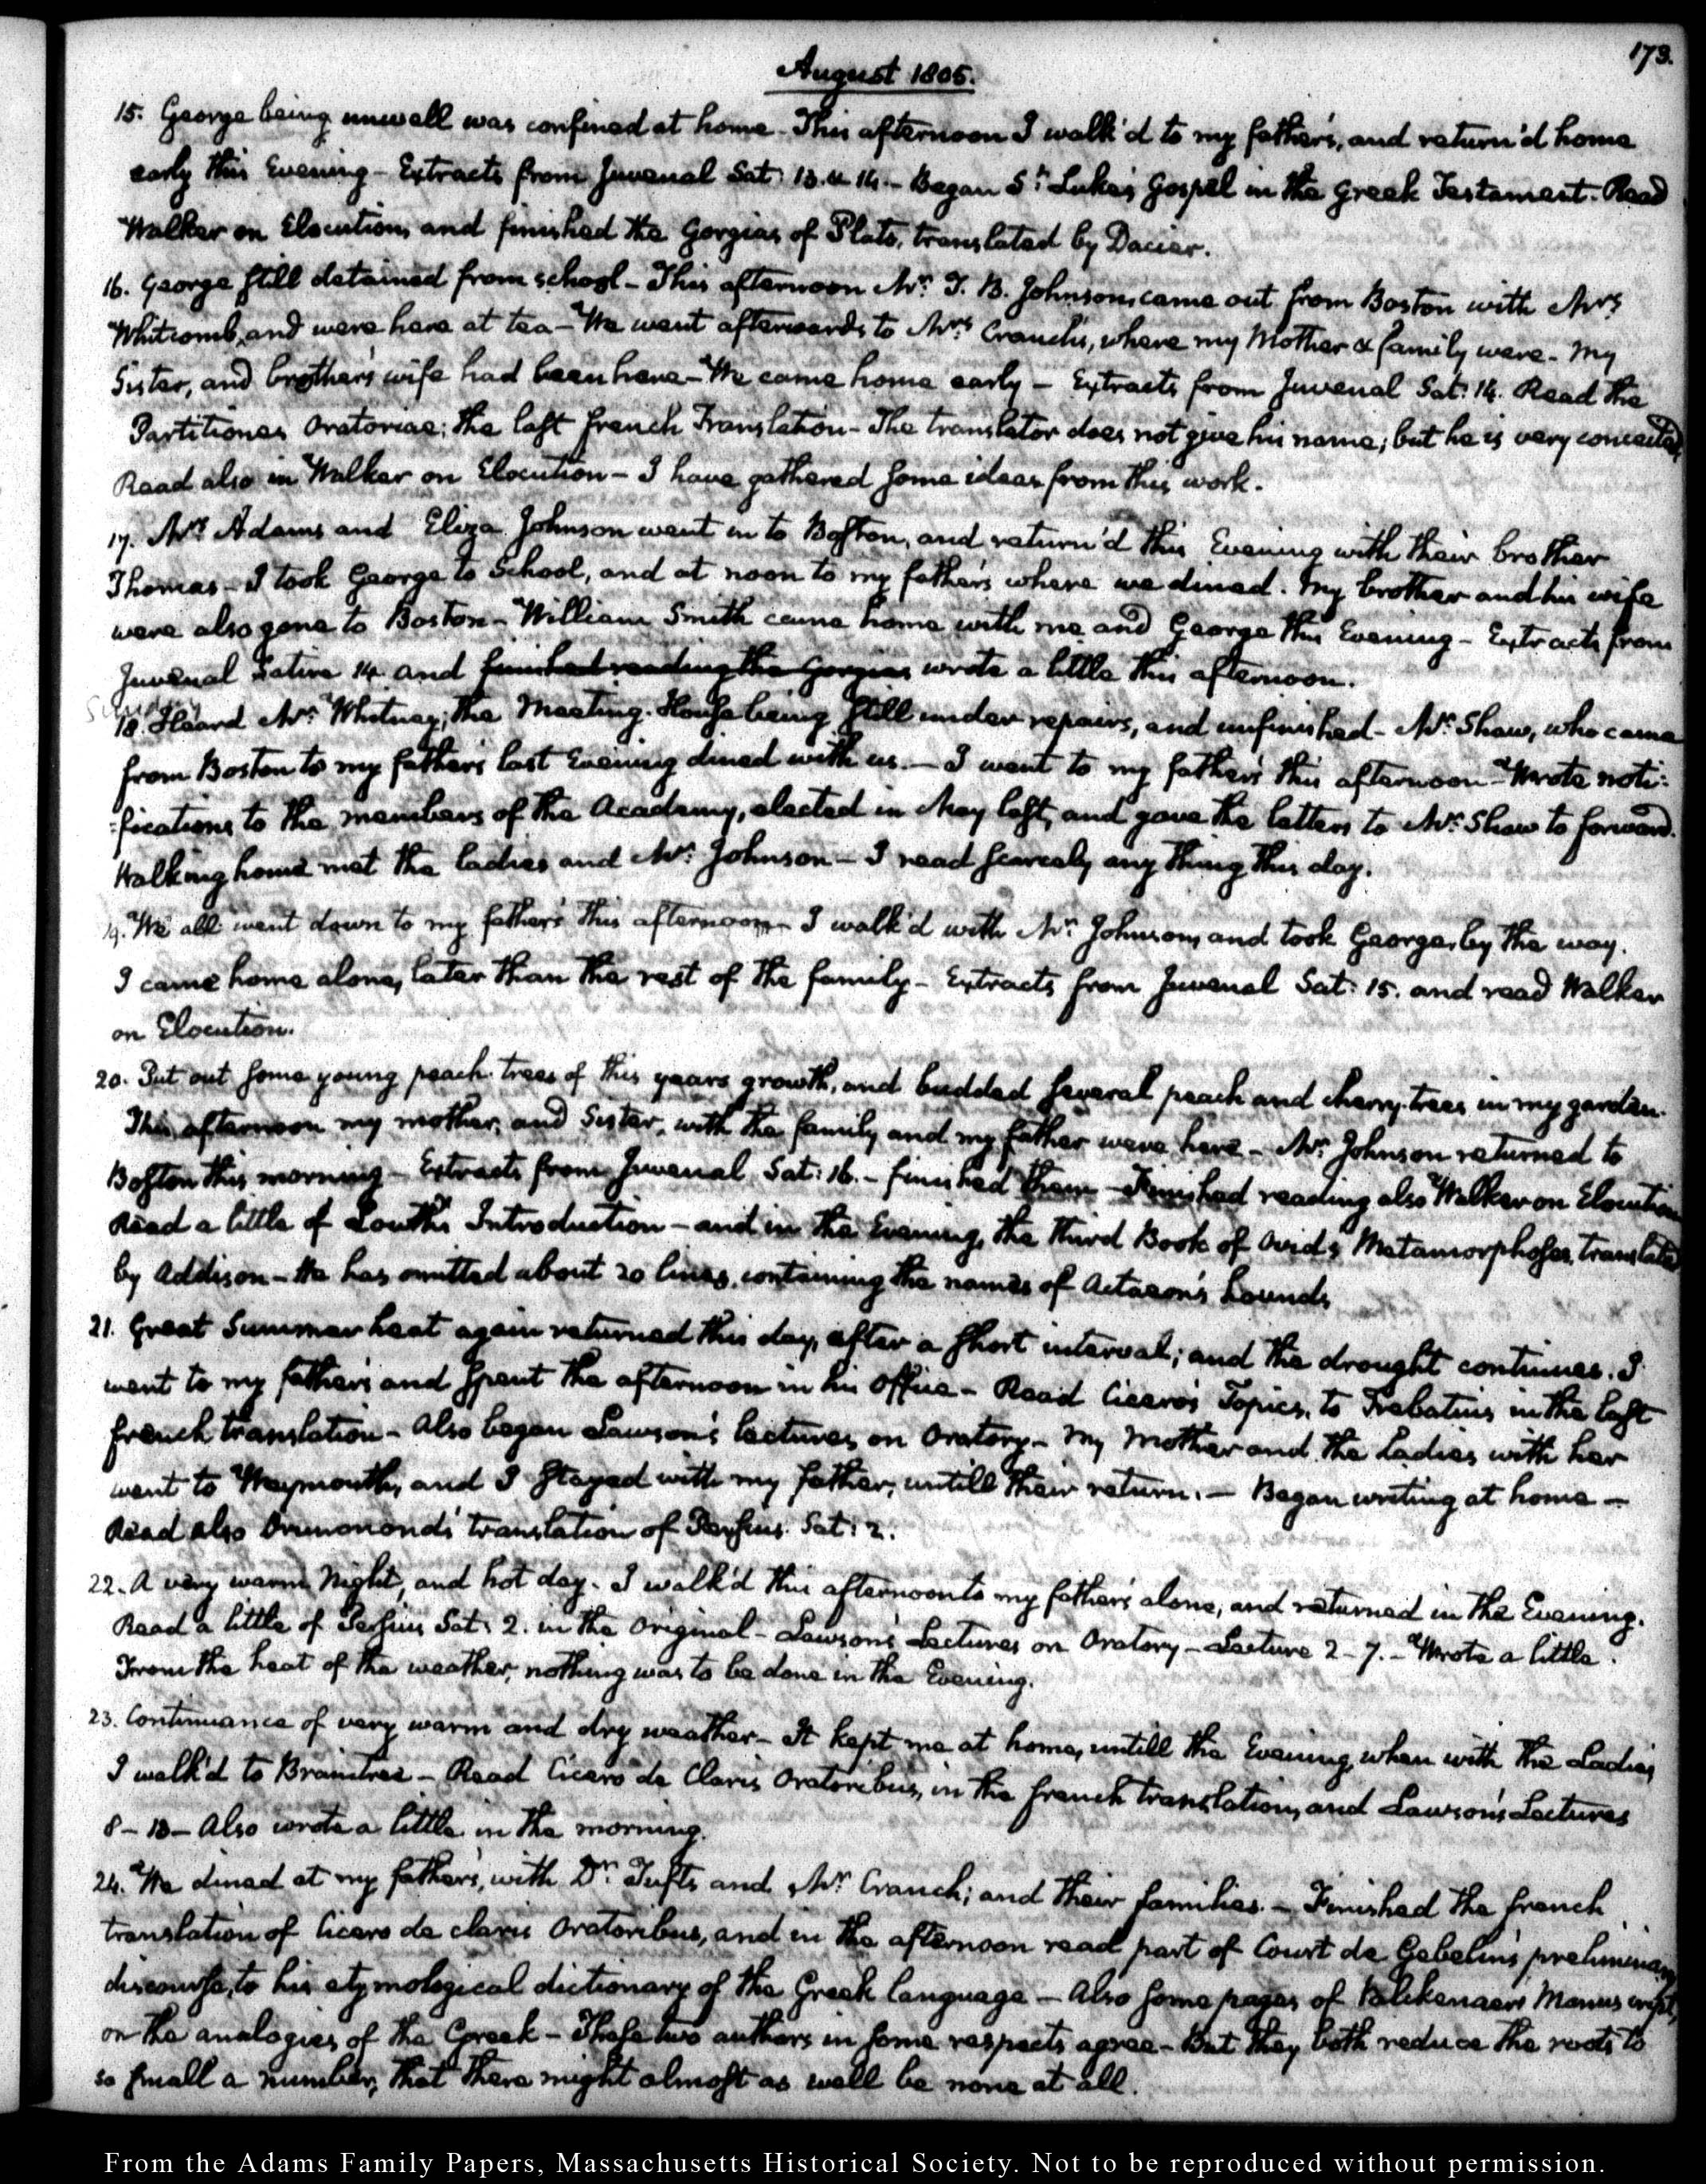 173.
August 1805.
15. George being unwell was confined at home - This afternoon I walk'd to my father's, and return'd home
early this Evening - Extracts from Juvenal Sat: 13. & 14. - Began St. Luke's Gospel in the Greek Testament. Read
Walker on Elocution, and finished the Gorgias of Plato, translated by Dacier.
16. George still detained from school - This afternoon Mr. T. B. Johnson, came out from Boston with Mrs
Whitcomb, and were here at tea - We went afterwards to Mrs Cranch's, where my Mother & family were - My
Sister, and brother's wife had been here - We came home early - Extracts from Juvenal Sat: 14. Read the
Partitiones Oratoriae; the last french Translation - The translator does not give his name; but he is very conceited,
Read also in Walker on Elocution - I have gathered some ideas from this work.
17. Mrs Adams and Eliza Johnson went in to Boston, and return'd this Evening with their brother
Thomas - I took George to School, and at noon to my father's where we dined. My brother and his wife
were also gone to Boston - William Smith came home with me and George this Evening - Extracts from
Juvenal Satire 14 and finished reading the Gorgias wrote a little this afternoon.
Sunday
18. Heard Mr. Whitney; the Meeting-House being still under repairs, and unfinished - Mr. Shaw, who came
from Boston to my father's last Evening dined with us. - I went to my father's this afternoon - Wrote noti:
:fications to the members of the Academy, elected in May last, and gave the letters to Mr. Shaw to forward.
Walking home met the ladies and Mr. Johnson - I read scarcely any thing this day.
19. We all went down to my father's this afternoon - I walk'd with Mr. Johnson, and took George, by the way.
I came home alone, later than the rest of the family - Extracts from Juvenal Sat: 15. and read Walker
on Elocution.
20. Put out some young peach-trees of this years growth, and budded several peach and cherry-trees in my garden.
This afternoon my mother, and Sister, with the family and my father were here - Mr. Johnson returned to
Boston this morning - Extracts from Juvenal Sat: 16. - finished them - Finished reading also Walker on Elocution
Read a little of Louth's Introduction - and in the Evening, the third Book of Ovid's Metamorphoses, translated
by Addison - He has omitted about 20 lines, containing the names of Actaeon's hounds,
21. Great Summer heat again returned this day, after a short interval; and the drought continues. I
went to my father's and spent the afternoon in his office - Read Cicero's Topics, to Trebatius in the last
french translation - Also began Lawson's lectures on Oratory - My Mother and the Ladies with her
went to Weymouth, and I stayed with my father, untill their return. - Began writing at home -
Read also Drummond's translation of Persius. Sat: 2.
22. A very warm Night, and hot day. I walk'd this afternoon to my father's alone, and returned in the Evening.
Read a little of Persius Sat: 2. in the Original - Lawson's Lectures on Oratory - Lecture 2-7. - Wrote a little.
From the heat of the weather, nothing was to be done in the Evening.
23. Continuance of very warm and dry weather - It kept me at home, untill the Evening, when with the Ladies
I walk'd to Braintree - Read Cicero de Claris Oratoribus, in the french translation, and Lawson's Lectures
8-13 - Also wrote a little in the morning.
24. We dined at my father's, with Dr. Tufts and Mr. Cranch; and their families. - Finished the french
translation of Cicero de claris Oratoribus, and in the afternoon read part of Court de Gebelin's preliminary
discourse, to his etymological dictionary of the Greek language - Also some pages of Valckenaer's Manuscript,
on the analogies of the Greek - These two authors in some respects agree - But they both reduce the roots to
so small a number, that there might almost as well be none at all.
From the Adams Family Papers, Massachusetts Historical Society. Not to be reproduced without permission.